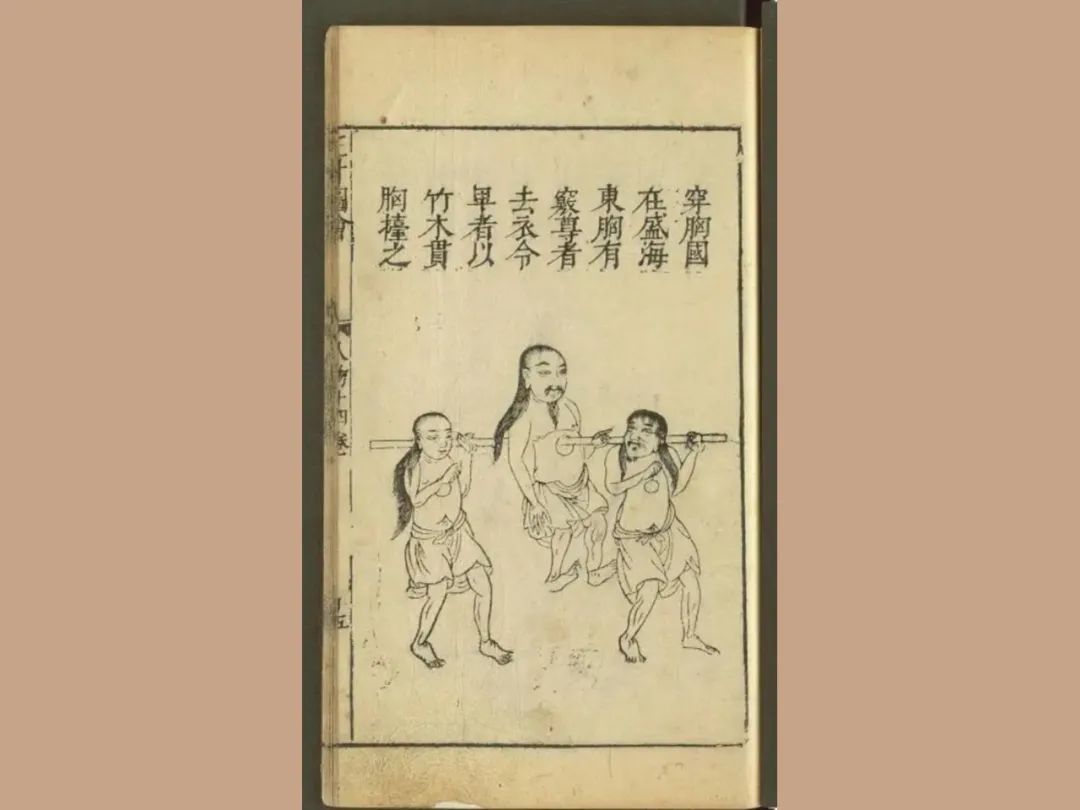 穿胸國
在盛海
東胸有
竅尊者
去衣令
卑者以
竹木貫
胸擡之
三才圖會
人物十四卷